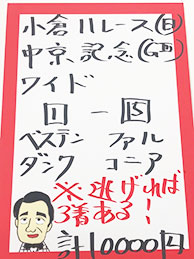 小倉11レース(日)
中京記念(GⅢ)
ワイド
1 - 15
ベステン ファル
ダンク コニア
※逃げれば
3着ある!
計10000円